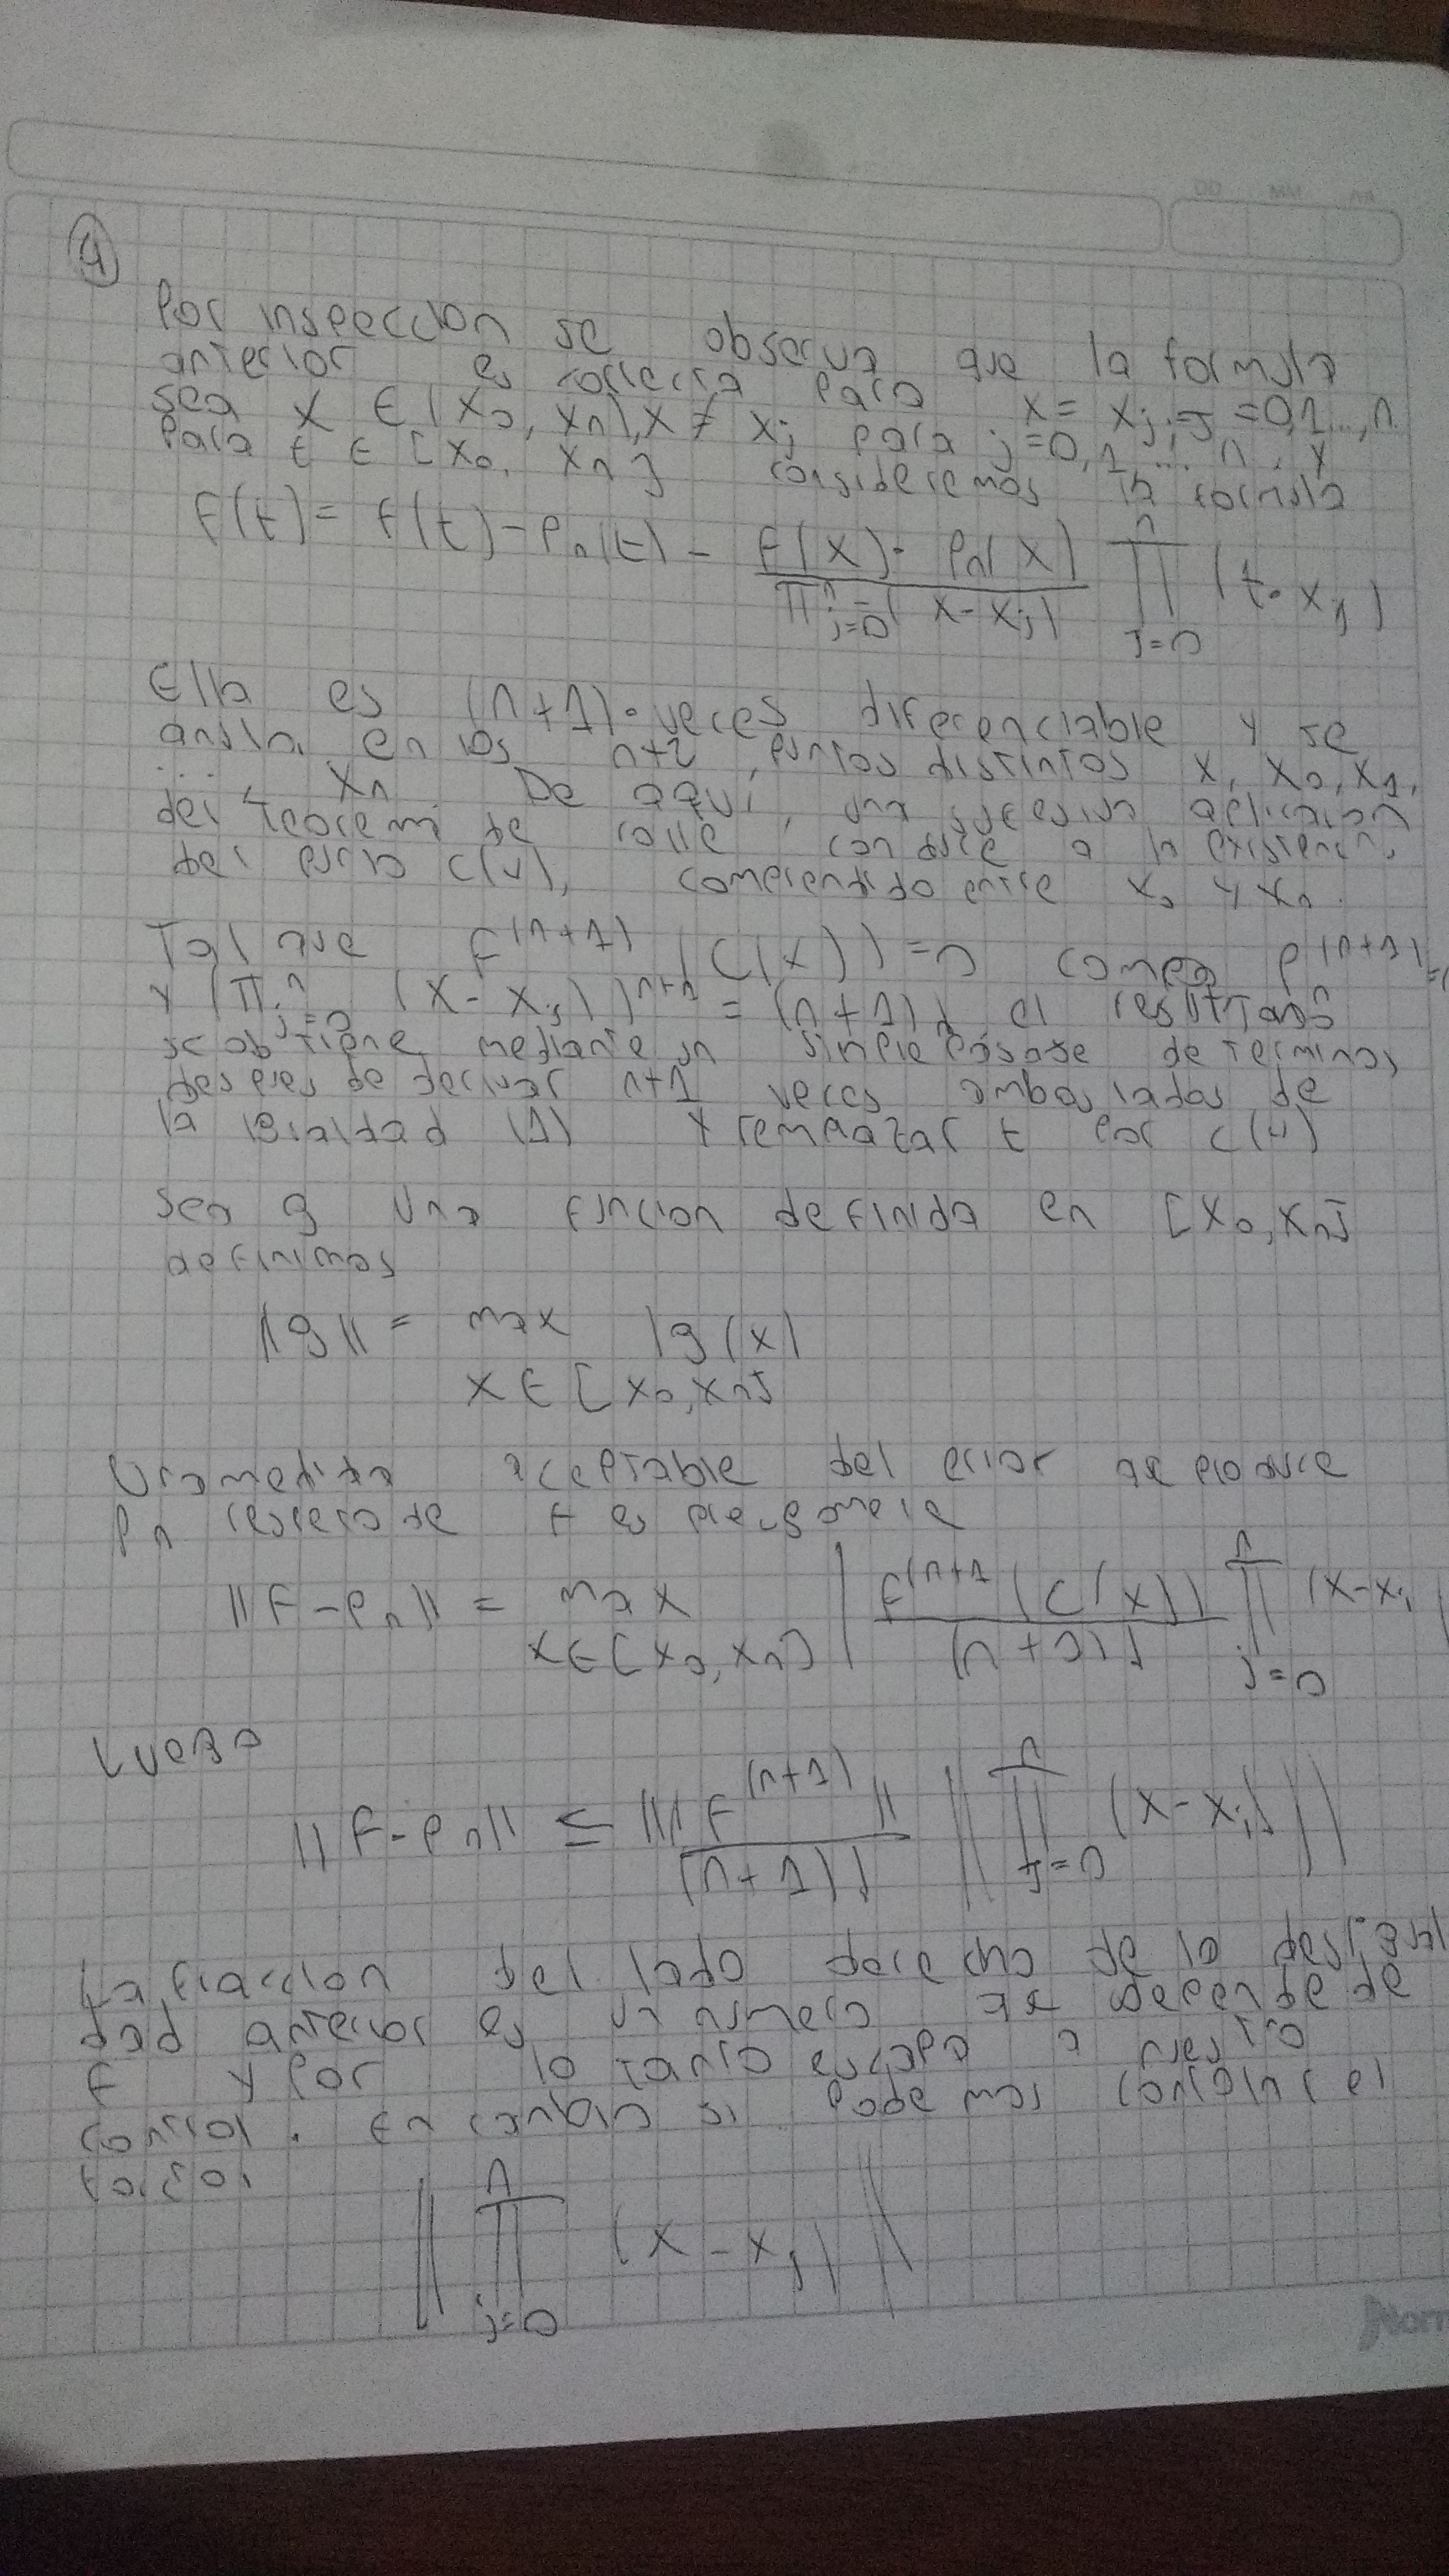 DD MM AA
4
Por inspeccion se observa que la formula
anterior es correcta para x = xj; j = 0,1...,n
sea x ∈ (x0, xn), x ≠ xj para j=0,1...n. y
Para t ∈ [x0, xn] consideremos la formula
F(t) = f(t) - Pn(t) - f(x) - Pn(x) / ∏ⁿj=0 (x-xj) ∏ⁿj=0 (t-xj)
Ella es (n+1)-veces diferenciable y se
anula en los n+2 puntos distintos x, x0, x1,
..., xn De aqui, una sucesiva aplicacion
del teorema de rolle conduce a la existencia
del punto c(x), comprendido entre x0 y xn.
Tal que F^(n+1) (c(x)) = 0 como P^(n+1) =
y (∏ⁿj=0 (x-xj))^n+1 = (n+1)! el resultado
se obtiene mediante un simple pasaje de terminos
despues de derivar n+1 veces ambos lados de
la igualdad (1) y remplazar t por c(x)
Sea g una funcion definida en [x0, xn]
definimos
||g|| = max |g(x)
x ∈ [x0, xn]
Una medida aceptable del error que produce
Pn respecto de f es
||F-Pn|| = max | F^(n+1 (c(x)) / (n+1)! ∏ⁿj=0 (x-xj
x∈[x0, xn]
Luego
||F-Pn|| ≤ ||F^(n+1)|| / (n+1)! || ∏ⁿj=0 (x-xj) ||
La fraccion del lado derecho de la desigual
dad anterior es un numero que depende de
F y por lo tanto escapa a nuestro
control. En cambio si podemos controlar el
factor
|| ∏ⁿj=0 (x-xj) ||
Norm